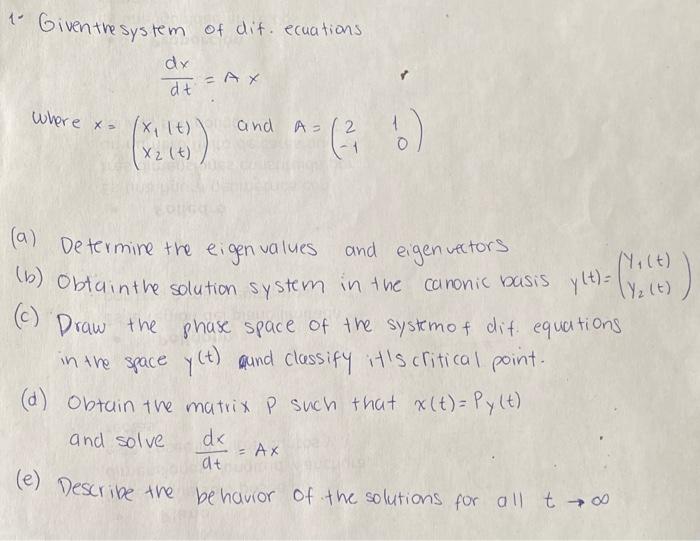 1- Giventhe system of dif. ecuations
dx/dt = A x
where x = (x₁(t) x₂(t)) and A = (2 1 -1 0)
(a) Determine the eigenvalues and eigenvectors
(b) Obtainthe solution system in the canonic basis y(t) = (Y₁(t) Y₂(t))
(c) Draw the phase space of the systemof dif. equations
in the space y(t) and classify it's critical point.
(d) Obtain the matrix P such that x(t) = Py(t)
and solve dx/dt = Ax
(e) Describe the behavior of the solutions for all t → ∞